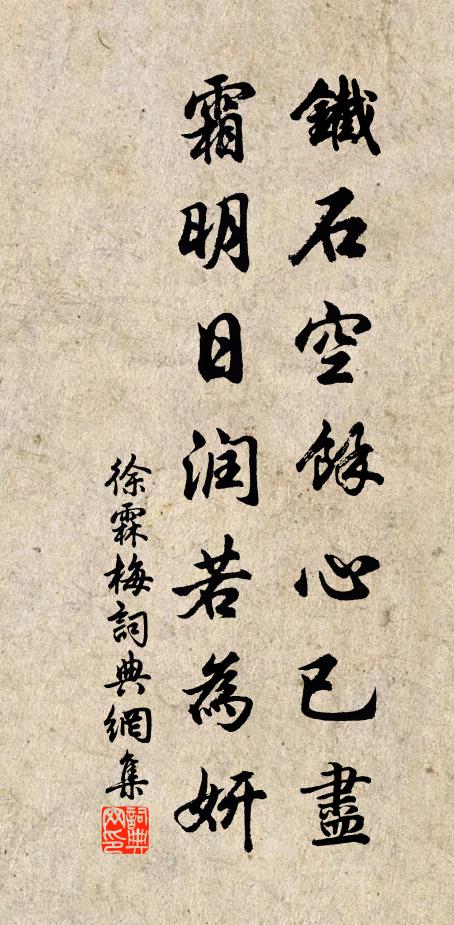 鐵石空餘心已盡
霜明日润若為妍
徐霖梅詞典網集
詞典網印